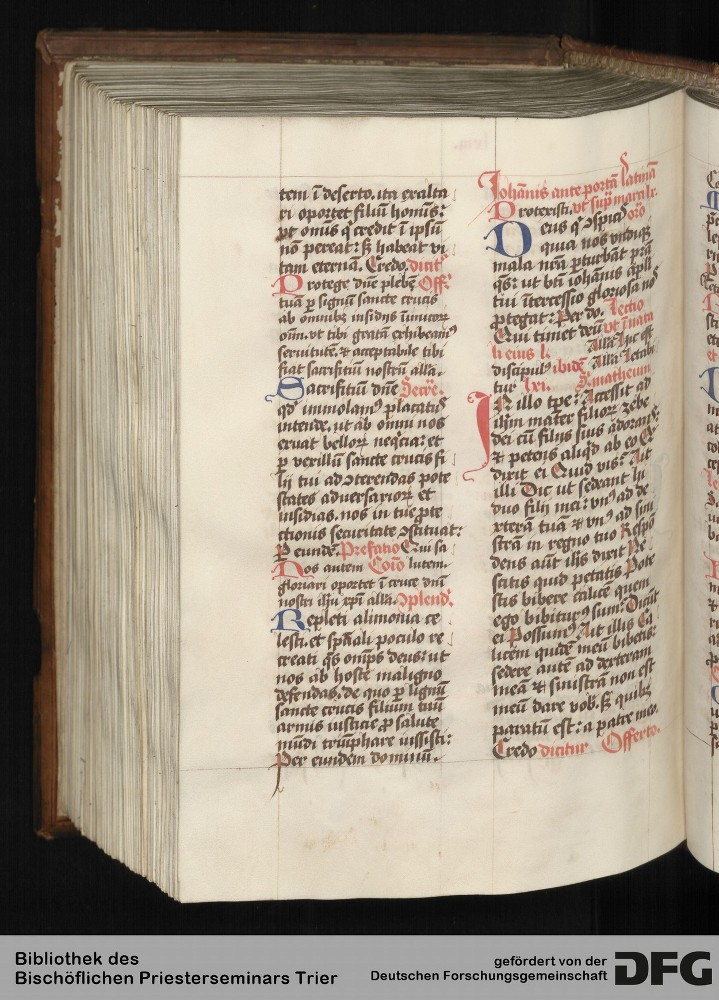 tem ī deserto. ita exalta
ri oportet filiū hominis:
ut omnis q̄ credit ī ipsū
nō pereat: sꝫ habeat vi
tam eternā. Credo. dicit̄
Protege dn̄e plebē Off̄
tuā ꝑ signū sancte crucis
ab omnibꝫ insidijs īimicoꝝ
oīm. ut tibi gratā exhibeamꝰ
seruitutē. ⁊ acceptabile tibi
fiat sacrifitiū nostrū alla.
Sacrifitiū dn̄e Secre.
qd̄ immolamꝰ placatꝰ
intende. ut ab omni nos
eruat belloꝝ neq̄cia: et
ꝑ vexillū sancte crucis fi
lij tui ad ꝯterendas pote
states aduersarioꝝ et
insidias. nos in tue ꝓte
ctionis securitate ꝯstituat:
P eundē. Prefatio Qui sa
Nos autem Cōio lutem.
gloriari oportet ī cruce dn̄i
nostri ih̄u xp̄i alla. ꝯplend̄.
Repleti alimonia ce
lesti. et sp̄ali poculo re
creati q̄s om̄ps deus: ut
nos ab hoste maligno
defendas. de quo ꝑ lignū
sancte crucis filium tuū
armis iusticie ꝓ salute
mūdi triūphare iussisti:
Per eundem dominū.
Johānis ante portā latinā
Protexisti. ut sup̄ marci
Deus q̄ ꝯspicis or̄o
quia nos undiqꝫ
mala nr̄a ꝑturbāt pr̄a
q̄s: ut bt̄i iohānis apl̄i
tui ītercessio gloriosa nos
ꝓtegat: Per do. Lectio
Qui timet deū ut ī nata
li eius l. Alla Hic est
discipulꝰ ibidē Alla Letabi
tur lxi. S. matheum
IN illo tꝑe: Accessit ad
ih̄m mater filioꝝ zebe
dei cū filijs suis adorans:
⁊ petens aliqd̄ ab eo Q̄
dixit ei Quid vis? Ait
illi Dic ut sedeant hi
duo filij mei: vnꝰ ad de
xterā tuā ⁊ vnꝰ ad sini
strā in regno tuo Respō
dens aūt ih̄s dixit Ne
scitis quid petatis Pote
stis bibere calicē quem
ego bibiturꝰ sum? Dicūt
ei Possumꝰ Ait illis Ca
licem quidē meū bibetis:
sedere autē ad dexteram
meā ⁊ sinistrā non est
meū dare vob. sꝫ quibꝫ
paratū est: a patre meo.
Credo dicitur Offerto.
Bibliothek des
Bischöflichen Priesterseminars Trier
gefördert von der
Deutschen Forschungsgemeinschaft
DFG